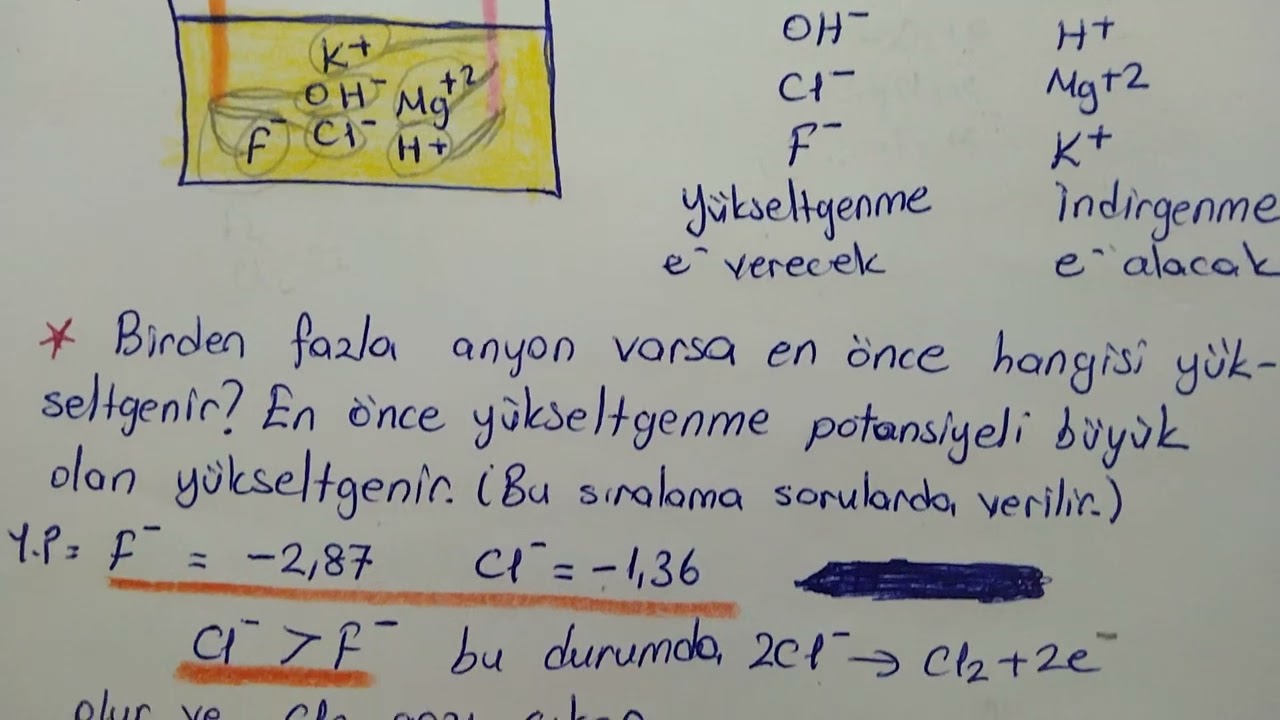 K+
OH⁻ Mg+2
F⁻ Cl⁻ H+
OH⁻ H+
Cl⁻ Mg+2
F⁻ K+
yükseltgenme İndirgenme
e⁻ verecek e⁻ alacak
* Birden fazla anyon varsa en önce hangisi yük-
seltgenir? En önce yükseltgenme potansiyeli büyük
olan yükseltgenir. (Bu sıralama sorularda verilir.)
Y.P= F⁻ = -2,87 Cl⁻ = -1,36
Cl⁻ > F⁻ bu durumda 2Cl⁻ → Cl₂ + 2e⁻
olur ve Cl₂